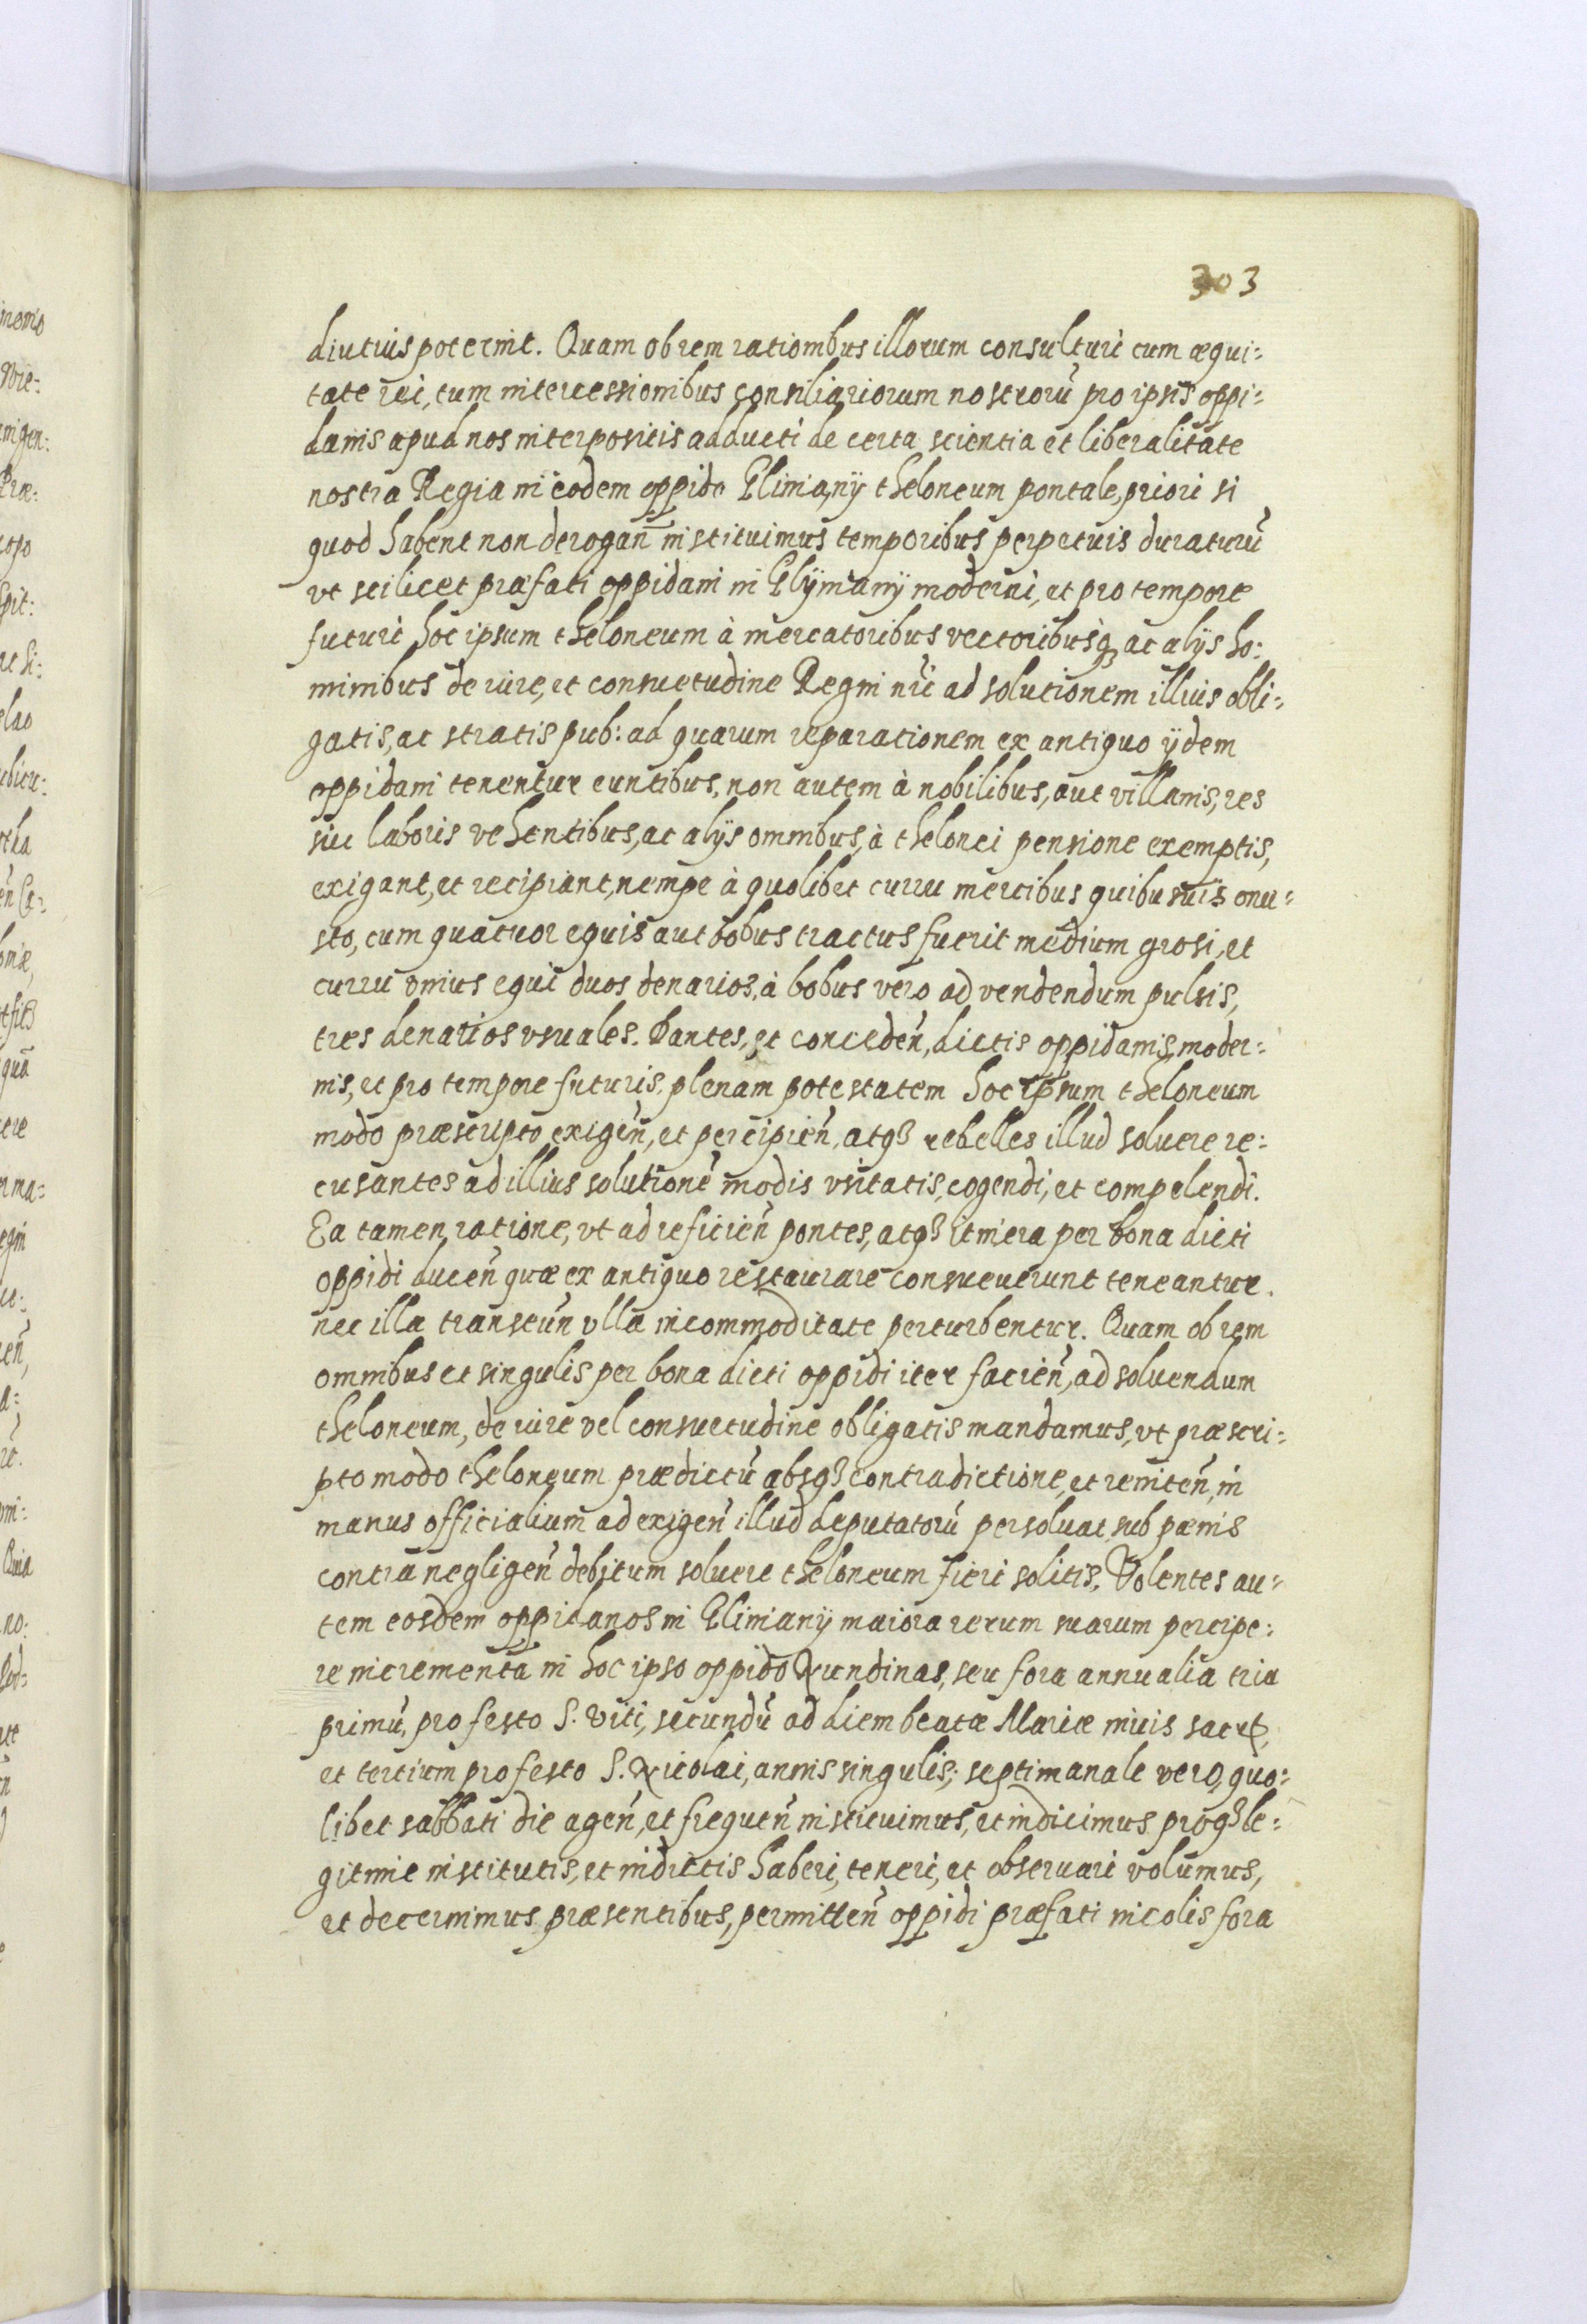 303
diutius poterint. Quam ob rem rationibus illorum consulturi cum æqui:
tate rei, tum intercessionibus consiliariorum nostrorū pro ipsis oppi:
danis apud nos interpositis adducti de certa scientia et liberalitate
nostra Regia in eodem oppido Elimany theloneum pontale, priori si
quod habent non derogan̄ instituimus temporibus perpetuis duraturū
vt scilicet præfati oppidani in Elÿmany moderni, et pro tempore
futuri hoc ipsum theloneum à mercatoribus vectoribusq3 ac alÿs ho:
minibus de iure, et consuetudine Regni nr̄i ad solutionem illius obli:
gatis, ac stratis pub: ad quarum reparationem ex antiquo ÿdem
oppidani tenentur euntibus, non autem à nobilibus, aut villanis, res
sui laboris vehentibus, ac alÿs omnibus, à thelonei pensione exemptis,
exigant, et recipiant, nempe à quolibet curru mercibus quibusuis onu:
sto, cum quatuor equis aut bobus tractus fuerit medium grosi, et
curru vnius equi duos denarios, à bobus vero ad vendendum pulsis,
tres denarios vsuales. Dantes, et conceden̄, dictis oppidanis, moder:
nis, et pro tempore futuris, plenam potestatem hoc ipsum theloneum
modo præscripto exigen̄, et percipien̄, atq3 rebelles illud soluere re:
cusantes ad illius solutionē modis vsitatis, cogendi, et compelendi.
Ea tamen ratione, vt ad reficien̄ pontes, atq3 itinera per bona dicti
oppidi ducen̄ quæ ex antiquo restaurare consueuerunt teneantur.
nec illa transeun̄ vlla incommoditate perturbentur. Quam ob rem
omnibus et singulis per bona dicti oppidi iter facien̄, ad soluendum
theloneum, de iure vel consuetudine obligatis mandamus, vt præscri:
pto modo theloneum prædictū absq3 contradictione, et reniten̄, in
manus officialium ad exigen̄ illud deputatorū persoluat, sub pænis
contra negligen̄ debitum soluere theloneum fieri solitis. Volentes au:
tem eosdem oppidanos in Elimany maiora rerum suarum percipe:
re incrementa in hoc ipso oppido Nundinas, seu fora annualia tria
primū, pro festo S. Viti, secundū ad diem beatæ Mariæ niuis sacrū,
et tertium pro festo S. Nicolai, annis singulis; septimanale vero, quo:
libet sabbati die agen̄, et frequen̄ instituimus, et indicimus proq3 le:
gitime institutis, et indictis haberi, teneri, et obseruari volumus,
et decernimus præsentibus, permitten̄ oppidi præfati incolis fora